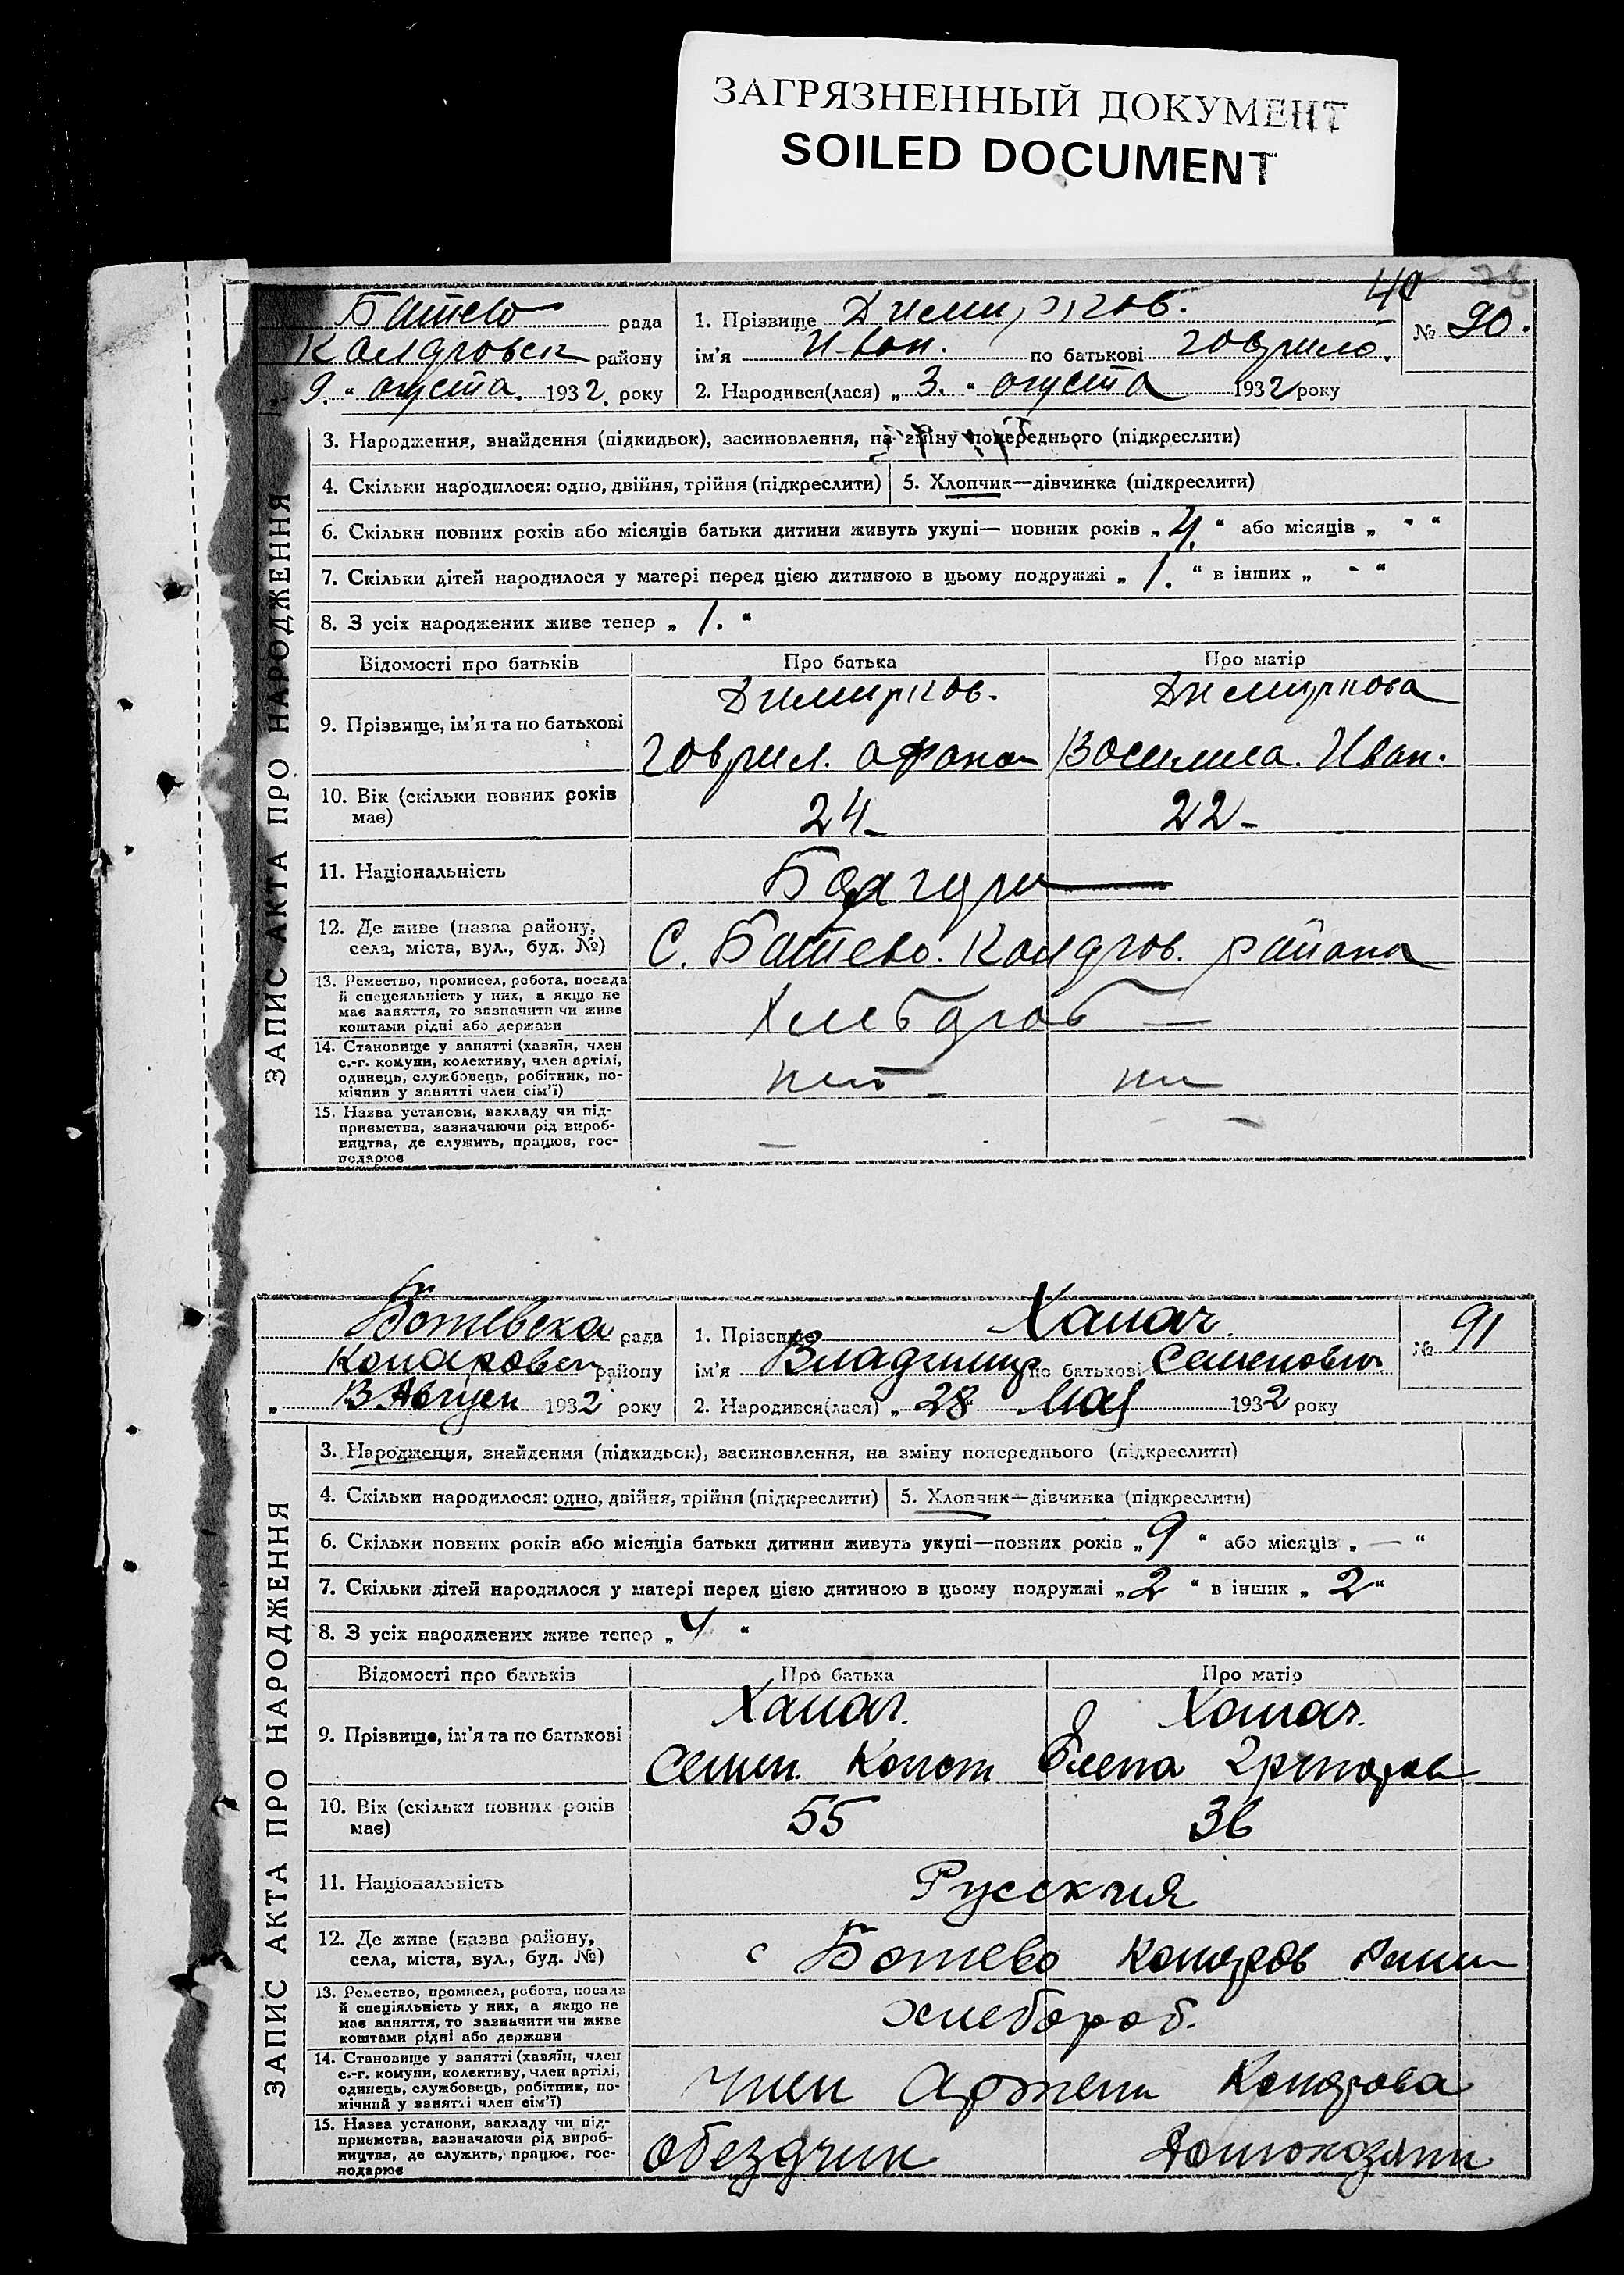 ЗАГРЯЗНЕННЫЙ ДОКУМЕНТ
SOILED DOCUMENT
40
№ 90.
Ботево рада
району
„ 9. “ огуста. 1932. року
1. Прізвище
ім'я Иван. по батькові Говрило.
2. Народився(лася) „ 3. “ огуста 1932 року
ЗАПИС АКТА ПРО НАРОДЖЕННЯ
3. Народження, знайдення (підкидьок), засиновлення, на зміну попереднього (підкреслити)
4. Скільки народилося: одно, двійня, трійня (підкреслити) 5. Хлопчик—дівчинка (підкреслити)
6. Скільки повних років або місяців батьки дитини живуть укупі— повних років „ 4. “ або місяців „ - “
7. Скільки дітей народилося у матері перед цією дитиною в цьому подружжі „ 1. “ в інших „ - “
8. З усіх народжених живе тепер „ 1. “
Відомості про батьків Про батька Про матір
9. Прізвище, ім'я та по батькові
Говрил. Офанас Восилиса. Иван.
10. Вік (скільки повних років має) 24 22
11. Національність Болгари
12. Де живе (назва району, села, міста, вул., буд. №) С. Ботево. района
13. Ремество, промисел, робота, посада
й спеціяльність у них, а якщо не
має заняття, то зазначити чи живе
коштами рідні або держави
Хлебороб —
14. Становище у занятті (хазяїн, член
с.-г. комуни, колективу, член артілі,
одинець, службовець, робітник, по-
мічник у занятті член сім'ї)
нет
15. Назва установи, закладу чи під-
приємства, зазначаючи рід вироб-
ництва, де служить, працює, гос-
подарює
— —
Ботевска рада
району
„ 13 Август 1932 року
1. Прізвище Хапач.
ім'я Владимир по батькові Семенович
2. Народився(лася) „ 28 “ Мая 1932 року
№ 91
ЗАПИС АКТА ПРО НАРОДЖЕННЯ
3. Народження, знайдення (підкидьок), засиновлення, на зміну попереднього (підкреслити)
4. Скільки народилося: одно, двійня, трійня (підкреслити) 5. Хлопчик—дівчинка (підкреслити)
6. Скільки повних років або місяців батьки дитини живуть укупі—повних років „ 9 “ або місяців „ — “
7. Скільки дітей народилося у матері перед цією дитиною в цьому подружжі „ 2 “ в інших „ 2 “
8. З усіх народжених живе тепер „ 4 “
Відомості про батьків Про батька Про матір
Хапач. Хапач.
9. Прізвище, ім'я та по батькові
Семен. Конст Елена Григоров
10. Вік (скільки повних років має) 55 36
11. Національність Русския
12. Де живе (назва району, села, міста, вул., буд. №) с Ботево
13. Ремество, промисел, робота, посада
й спеціяльність у них, а якщо не
має заняття, то зазначити чи живе
коштами рідні або держави
хлебороб.
14. Становище у занятті (хазяїн, член
с.-г. комуни, колективу, член артілі,
одинець, службовець, робітник, по-
мічний у занятті член сім'ї)
член Артели
15. Назва установи, закладу чи під-
приємства, зазначаючи рід вироб-
ництва, де служить, працює, гос-
подарює
обездчик Домохозяйн